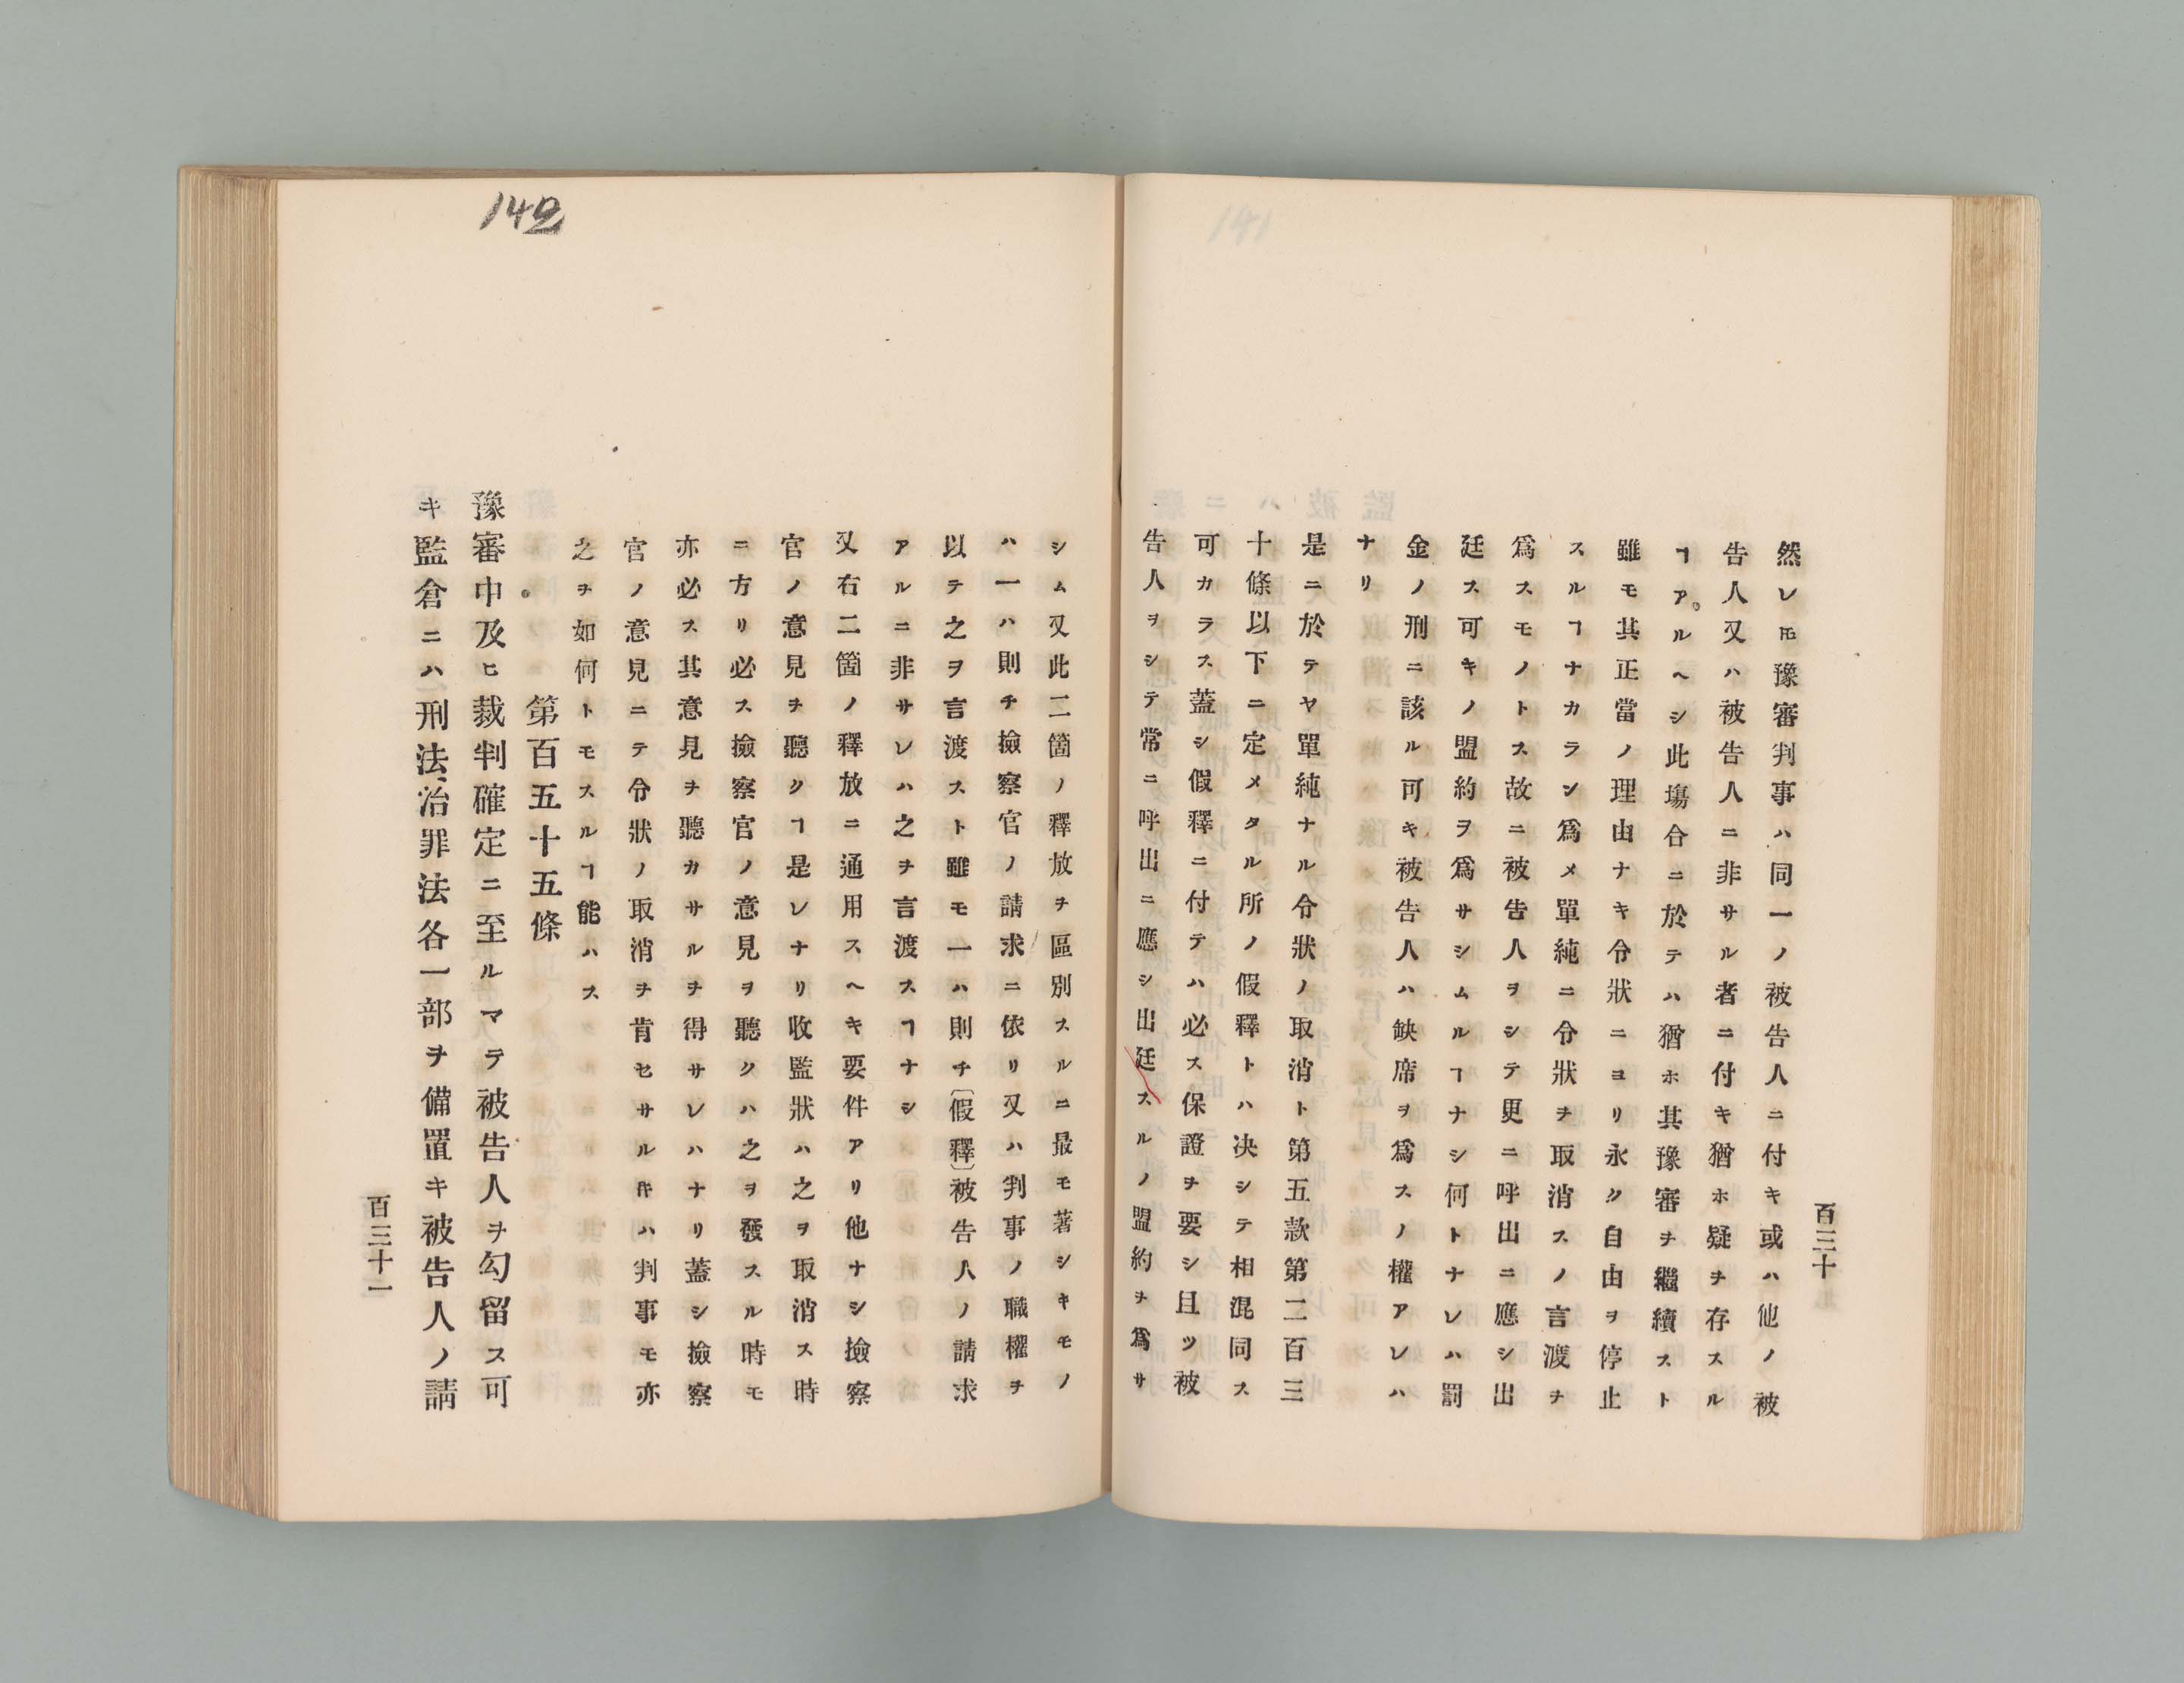 141
百三十
然レ𪜈豫審判事ハ同一ノ被告人ニ付キ或ハ他ノ被
告人又ハ被告人ニ非サル者ニ付キ猶ホ疑ヲ存スル
ヿアルヘシ此塲合ニ於テハ猶ホ其豫審ヲ繼續スト
雖モ其正當ノ理由ナキ令狀ニヨリ永ク自由ヲ停止
スルヿナカラン爲メ單純ニ令狀ヲ取消スノ言渡ヲ
爲スモノトス故ニ被告人ヲシテ更ニ呼出ニ應シ出
廷ス可キノ盟約ヲ爲サシムルヿナシ何トナレハ罰
金ノ刑ニ該ル可キ被告人ハ缺席ヲ爲スノ權アレハ
ナリ
是ニ於テヤ單純ナル令狀ノ取消ト第五款第二百三
十條以下ニ定メタル所ノ假釋トハ決シテ相混同ス
可カラス蓋シ假釋ニ付テハ必ス保證ヲ要シ且ツ被
告人ヲシテ常ニ呼出ニ應シ出廷スルノ盟約ヲ爲サ
142
シム又此二箇ノ釋放ヲ區別スルニ最モ著シキモノ
ハ一ハ則チ撿察官ノ請求ニ依リ又ハ判事ノ職權ヲ
以テ之ヲ言渡スト雖モ一ハ則チ〔假釋〕被告人ノ請求
アルニ非サレハ之ヲ言渡スヿナシ
又右二箇ノ釋放ニ通用スヘキ要件アリ他ナシ撿察
官ノ意見ヲ聽クヿ是レナリ收監狀ハ之ヲ取消ス時
ニ方リ必ス撿察官ノ意見ヲ聽クハ之ヲ發スル時モ
亦必ス其意見ヲ聽カサルヲ得サレハナリ蓋シ撿察
官ノ意見ニテ令狀ノ取消ヲ肯セサル𪜈ハ判事モ亦
之ヲ如何トモスルヿ能ハス
第百五十五條
豫審中及ヒ裁判確定ニ至ルマテ被告人ヲ勾留ス可
キ監倉ニハ刑法、治罪法各一部ヲ備置キ被告人ノ請
百三十一